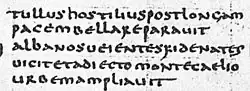 tullus hostilius post longam
pacem bella reparauit
albanos ueientes fidenates
uicit et adiecto monte caelio
urbem ampliauit